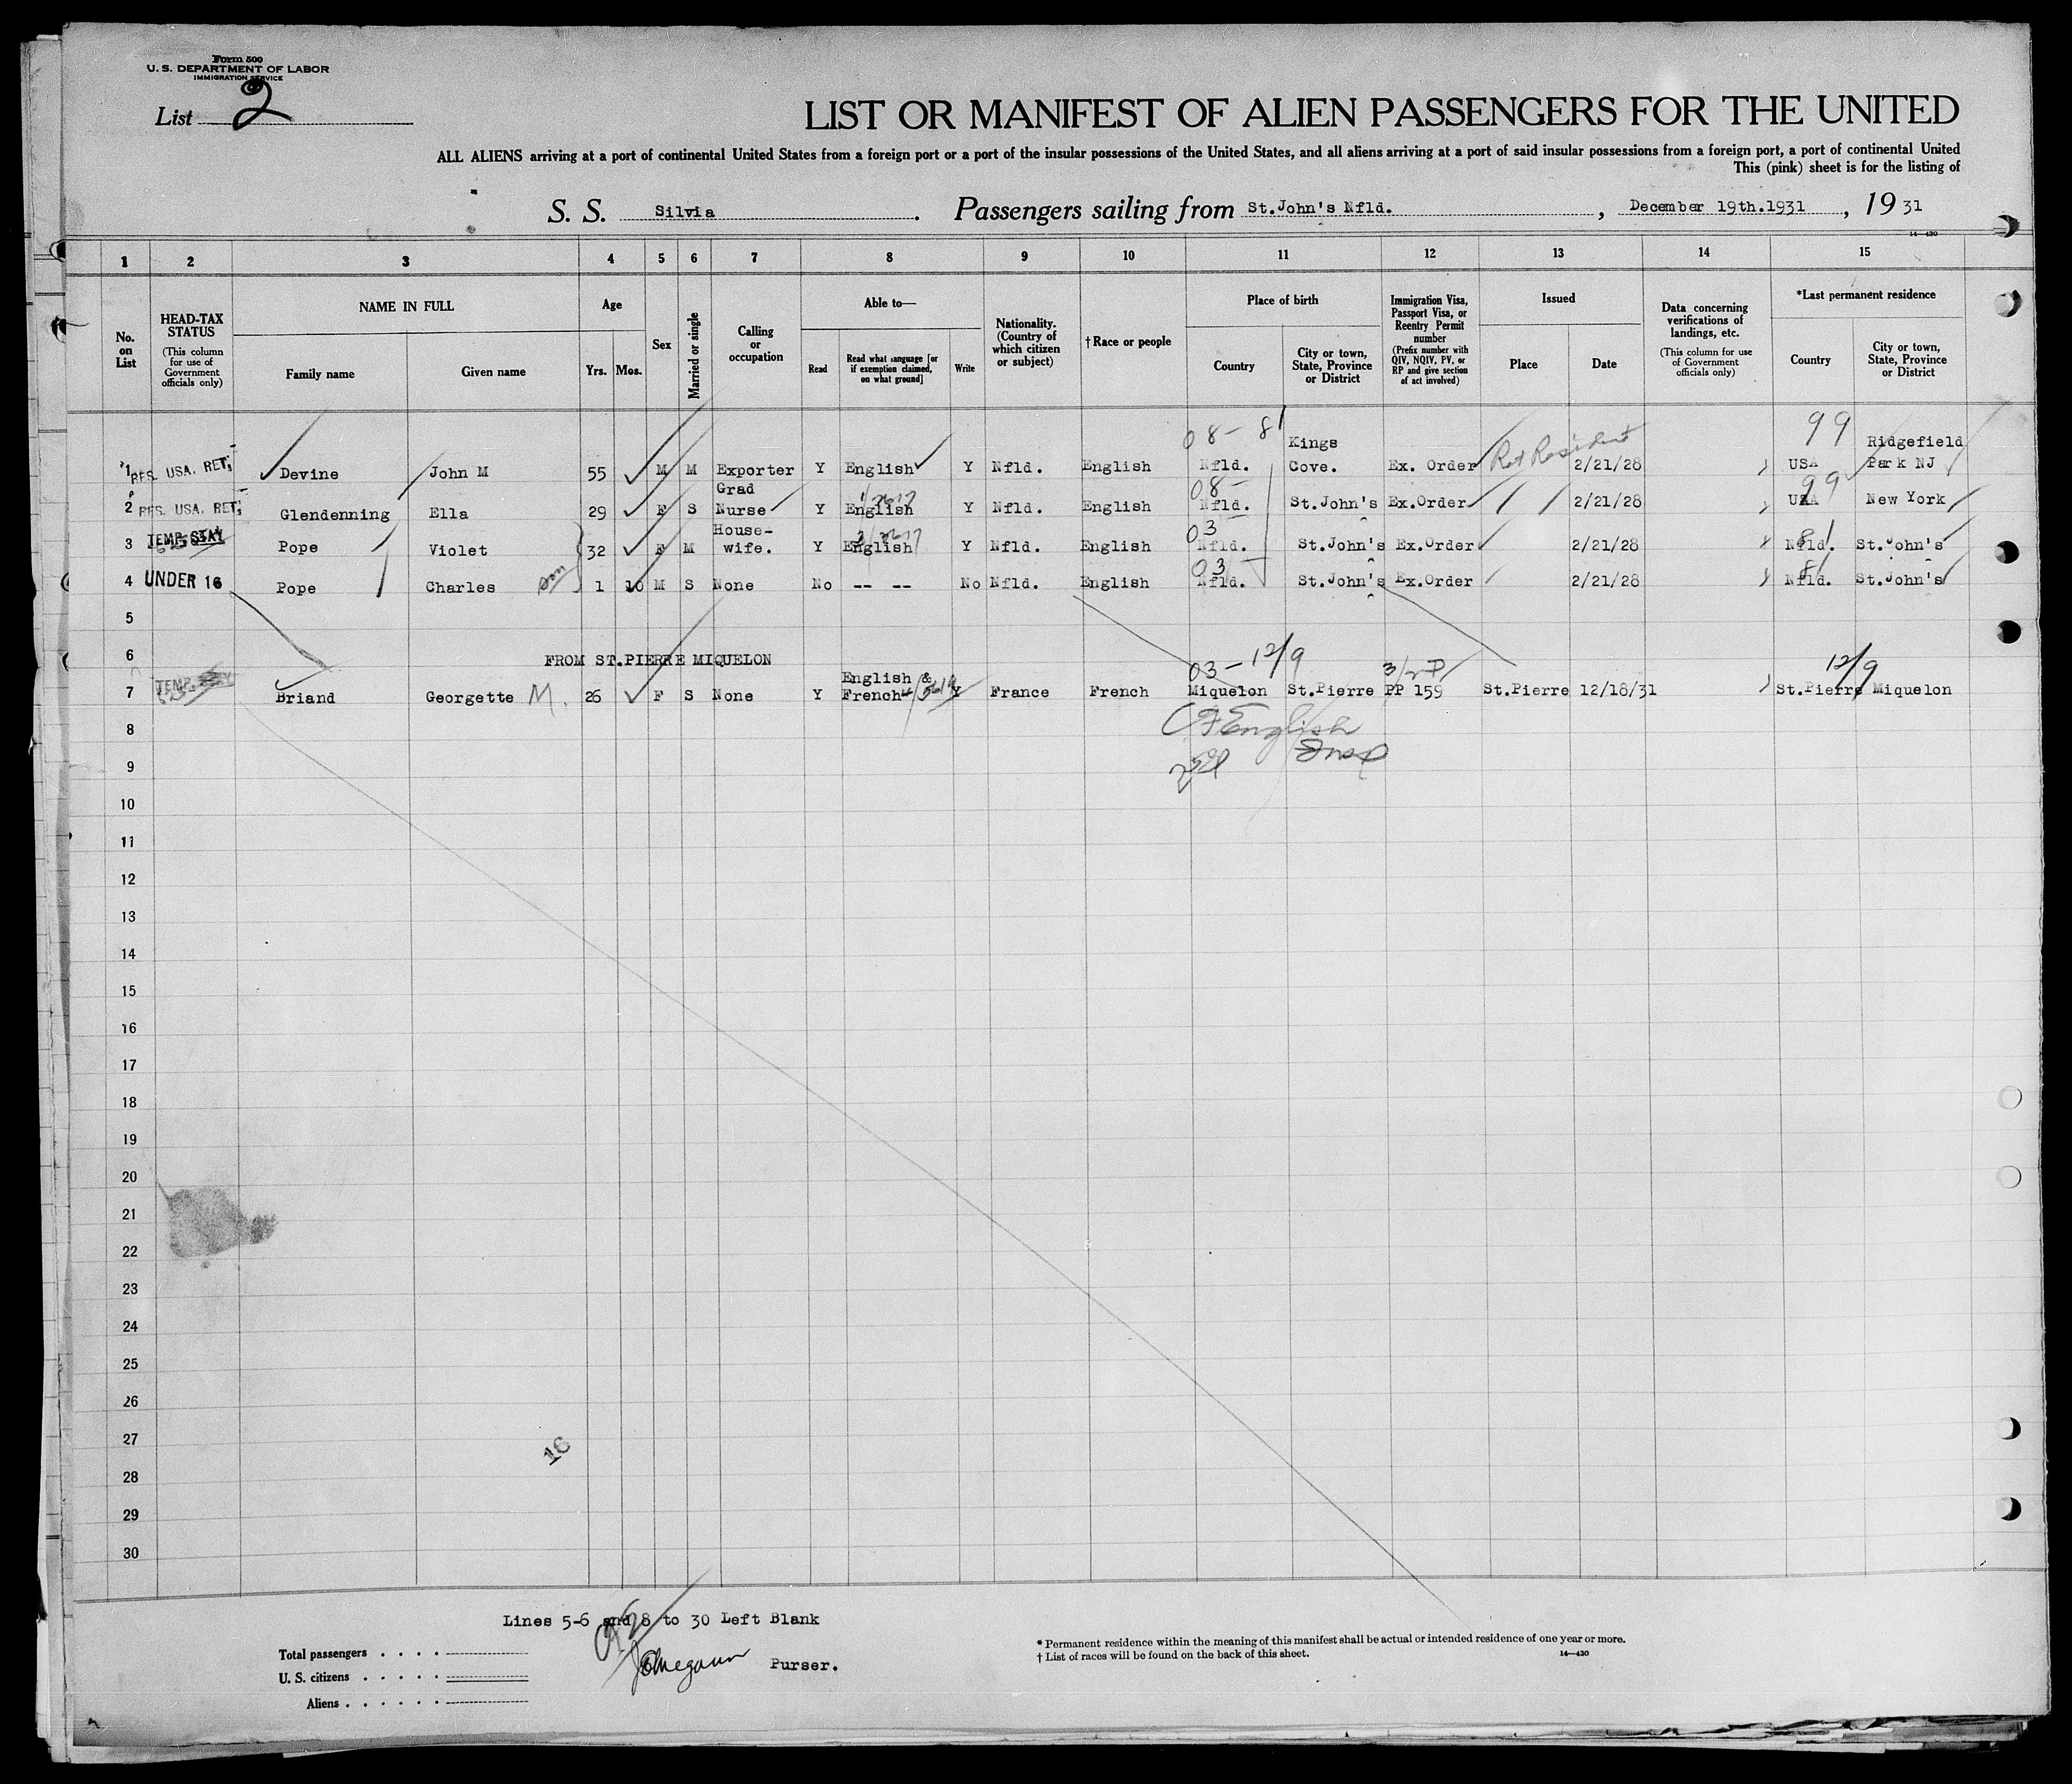 Form 500
U. S. DEPARTMENT OF LABOR
IMMIGRATION SERVICE
List 2
LIST OR MANIFEST OF ALIEN PASSENGERS FOR THE UNITED
ALL ALIENS arriving at a port of continental United States from a foreign port or a port of the insular possessions of the United States, and all aliens arriving at a port of said insular possessions from a foreign port, a port of continental United
This (pink) sheet is for the listing of
S. S. Silvia. Passengers sailing from St.John's Nfld., December 19th.1931, 19 31
14—430
1 2 3 4 5 6 7 8 9 10 11 12 13 14 15
No. on List
HEAD-TAX STATUS
(This column for use of Government officials only)
NAME IN FULL
Family name Given name
Age
Yrs. Mos.
Sex
Married or single
Calling or occupation
Able to—
Read
Read what language [or if exemption claimed, on what ground]
Write
Nationality. (Country of which citizen or subject)
†Race or people
Place of birth
Country
City or town, State, Province or District
Immigration Visa, Passport Visa, or Reentry Permit number
(Prefix number with QIV, NQIV, PV, or RP and give section of act involved)
Issued
Place Date
Data concerning verifications of landings, etc.
(This column for use of Government officials only)
*Last permanent residence
Country
City or town, State, Province or District
08- 81 99
Kings Ridgefield
1 RES. USA. RET. Devine John M 55 M M Exporter Y English Y Nfld. English Nfld. Cove. Ex. Order Ret Resident 2/21/28 USA Park NJ
Grad 08- 99
2 RES. USA. RET. Glendenning Ella 29 F S Nurse Y English Y Nfld. English Nfld. St.John's Ex.Order 2/21/28 USA New York
House- 03 81
3 TEMP. STAY Pope Violet 32 F M wife. Y English Y Nfld. English Nfld. St.John's Ex.Order 2/21/28 Nfld. St.John's
03 81
4 UNDER 16 Pope Charles son 1 10 M S None No -- -- No Nfld. English Nfld. St.John's Ex.Order 2/21/28 Nfld. St.John's
5
6 FROM ST.PIERRE MIQUELON
English & 03-12/9 12/9
7 TEMP. STAY Briand Georgette M. 26 F S None Y French Y France French Miquelon St.Pierre PP 159 St.Pierre 12/18/31 St.Pierre Miquelon
8 English
9
10
11
12
13
14
15
16
17
18
19
20
21
22
23
24
25
26
27
16
28
29
30
Lines 5-6 and 8 to 30 Left Blank
Total passengers
U. S. citizens
Aliens
Purser.
* Permanent residence within the meaning of this manifest shall be actual or intended residence of one year or more.
† List of races will be found on the back of this sheet.
14—430